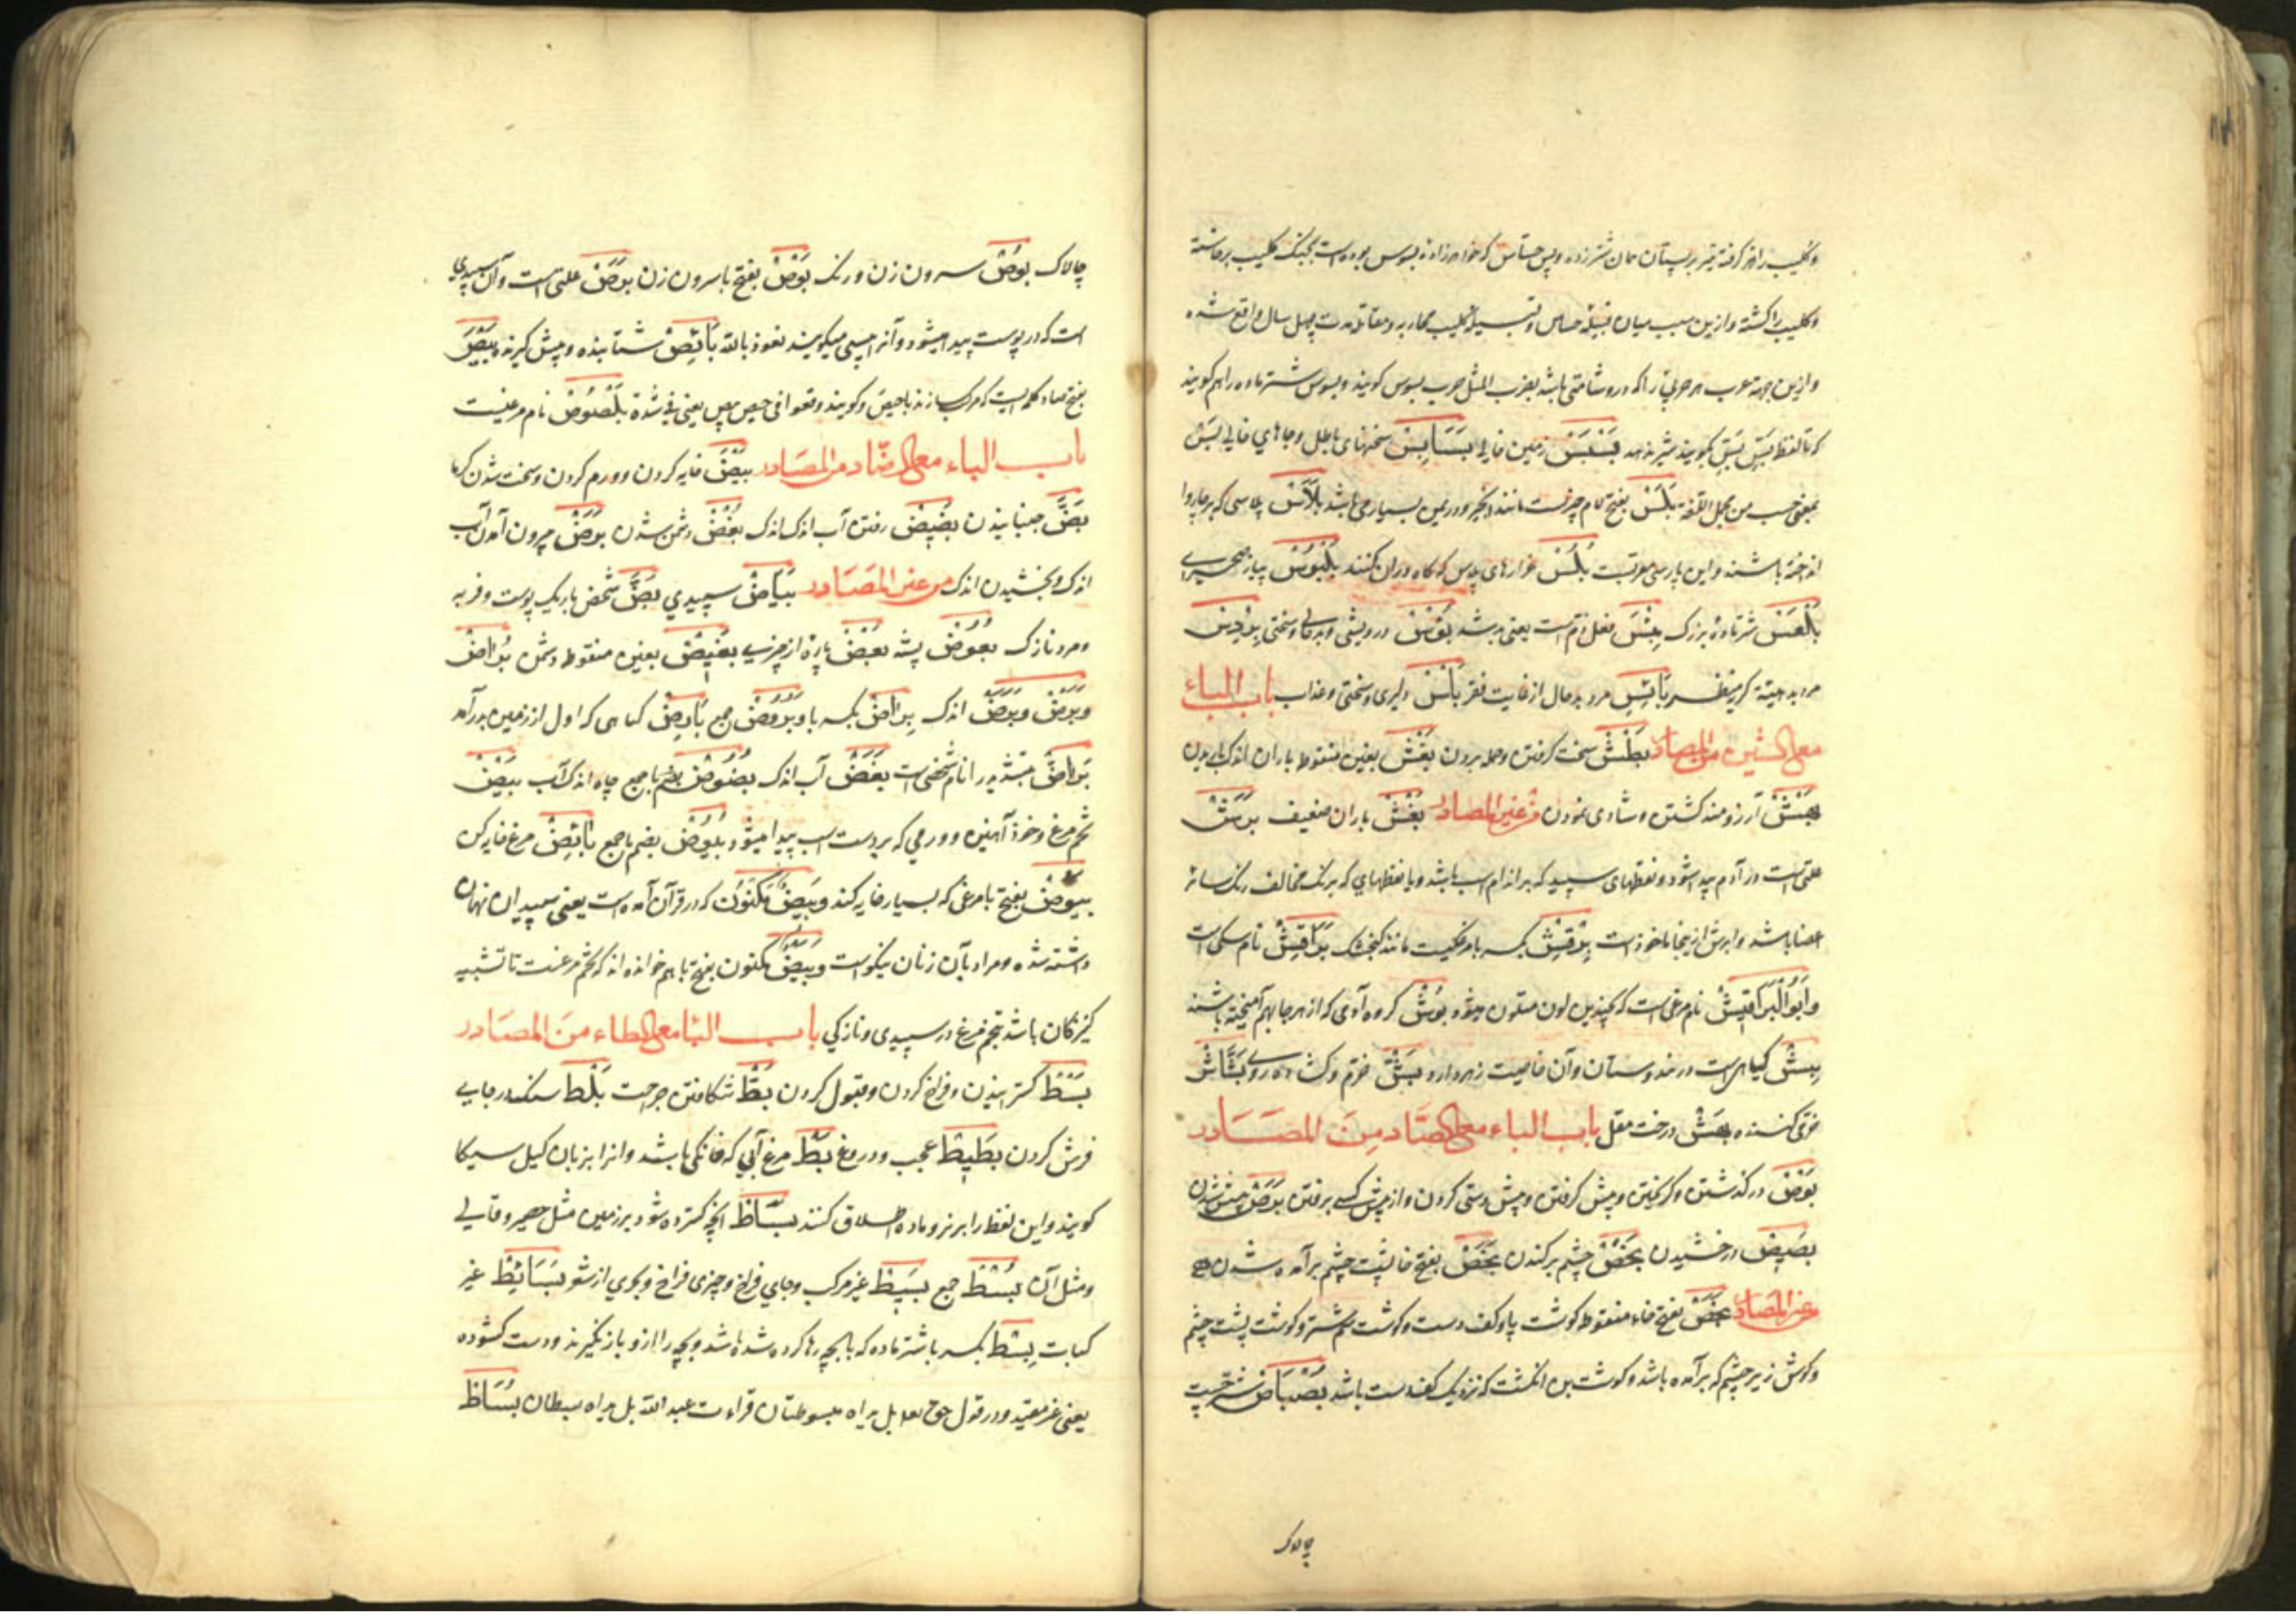 و کلیب را هر گرفته تیر بر پستان همان شتر زده و پس جساس که خواهرزاده بسوس بوده است بجنگ کلیب برخاسته
و کلیب را کشته و ازین سبب میان قبیلهٔ جساس و قبیلهٔ کلیب محاربه و مقاتله مدت چهل سال واقع شده
و ازین جهت عرب هر حربی را که درو شامتی باشد بضرب المثل حرب بسوس گویند و بسوس شتر ماده را هم گویند
که تا لفظ بس بس نگویند شیر ندهد بسبس زمین خالی بسابس سخنهای باطل و جاهای خالی بس
بمعنی حسب من مجمل اللغة بلس بفتح لام چیزیست مانند انجیر و در یمن بسیار می باشد بلاس پلاسی که بر جا روا
انداخته باشند و این پارسی معربست بلس غرارهای پلاس که کاه دران کنند بلبوس پیاز صحرایی
بلعس شتر ماده بزرک بئس فعل ذم است یعنی بد شد بؤس درویشی و بدحالی و سختی
مرد بد هیئة کریه منظر بائس مرد بد حال از غایت فقر بأس دلیری و سختی و عذاب باب الباء
مع الشین من المصادر بطش سخت کرفتن و حمله بردن بغش بغین منقوط باران اندک باریدن
بهش آرزومند کشتن و شادی نمودن من غیر المصادر بغش باران ضعیف برش
علتی است در آدم پیدا شود و نقطهای سپید که بر اندام اسب باشد و یا نقطهای که برنک مخالف رنک سائر
اعضا باشد و ابرش ازینجا ماخوذ است برقش بکسر با مرغکیست مانند کنجشک براقش نام سکی است
و ابو البراقش نام مرغی است که بچندین لون متلون میشود بوش کروه آدمی که از هر جا بهم آمیخته باشند
بیش کیاهی است در هندوستان و آن خاصیت زهر دارد بش خرم و کشاده روی بشاش
خرمی کننده بهش درخت مقل باب الباء مع الصاد من المصادر
بوص در کذشتن و کریختن و پیش کرفتن و پیش دستی کردن و از پیش کسی برفتن برص پیس شدن
بصیص درخشیدن بخص چشم برکندن بخص بفتح خا پشت چشم برآمده شدن من
غیر المصادر بخص بفتح خاء منقوط کوشت پا و کف دست و کوشت سم شتر و کوشت پشت چشم
و کوش زیر چشم که برآمده باشد و کوشت بن انکشت که نزدیک کف دست باشد بصباص شتر چست
چالاک
چالاک بوص سرون زن و رنک بوص بفتح با سرون زن برص علتی است و آن سپیدی
است که در پوست پیدا میشود و آنرا پیسی میکویند نعوذ بالله بائص شتابنده و پیش کیرنده بیص
بفتح صاد کلمه ایست که مرکب سازند با حیص و کویند وقعوا فی حیص بیص یعنی فی شدة بلصوص نام مرغیست
باب الباء مع الضاد من المصادر بیض خایه کردن و ورم کردن و سخت شدن کرما
بض جنبانیدن بضیض رفتن آب اندک اندک بغض دشمن شدن بروض بیرون آمدن آب
اندک و بخشیدن اندک من غیر المصادر بیاض سپیدی بض شخص باریک پوست و فربه
و مرد نازک بعوض پشه بعض پاره از چیزی بغیض بغین منقوط دشمن براض
و برض و برض اندک براض بکسر با و بروض جمع بارض کیاهی که اول از زمین بدرآمد
براض بتشدید را نام شخصی است بضض آب اندک بضوض بضم با جمع چاه اندک آب بیض
تخم مرغ و خود آهنین و ورمی که بر دست اسب پیدا میشود بیوض بضم با جمع بائض مرغ خایه کن
بیوض بفتح با مرغی که بسیار خایه کند و بیض مکنون که در قرآن آمده است یعنی سپیدان نهان
داشته شده و مراد بآن زنان نیکو است و بیض مکنون بفتح با هم خوانده اند که تخم مرغست تا تشبیه
کنیزکان باشد بتخم مرغ در سپیدی و نازکی باب البا مع الطاء من المصادر
بسط کسترانیدن و فراخ کردن و قبول کردن بط شکافتن جراحت بلط سنک در جایی
فرش کردن بطیط عجب و دروغ بط مرغ آبی که خانکی باشد و انرا بزبان کیل سیکا
کویند و این لفظ را بر نر و ماده اطلاق کنند بساط انچه کسترده شود بر زمین مثل حصیر و قالی
و مثل آن بسط جمع بسیط غیر مرکب و جای فراخ و چیزی فراخ و بحری از شعر بسائط غیر
کبابت بسط بکسر با شتر ماده که با بچه رها کرده شده باشد و بچه را ازو باز نکیرند و دست کشوده
یعنی غیر مقید و در قول حق تعا بل یداه مبسوطتان قراءت عبد الله بل یداه بسطان بساط